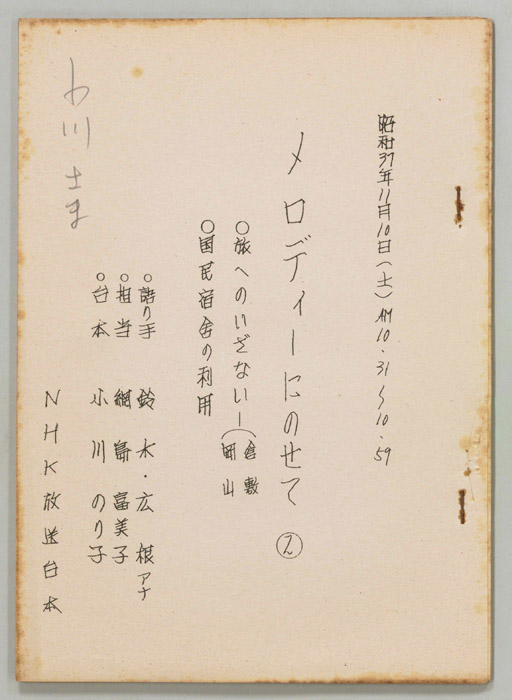 昭和37年11月10日(土)AM10.31〜10.59
メロディーにのせて ②
○旅へのいざないー(倉敷 岡山
○国民宿舎の利用
○語り手 鈴木・広根アナ
○担当 綱島富美子
○台本 小川のり子
NHK放送台本
小川さま